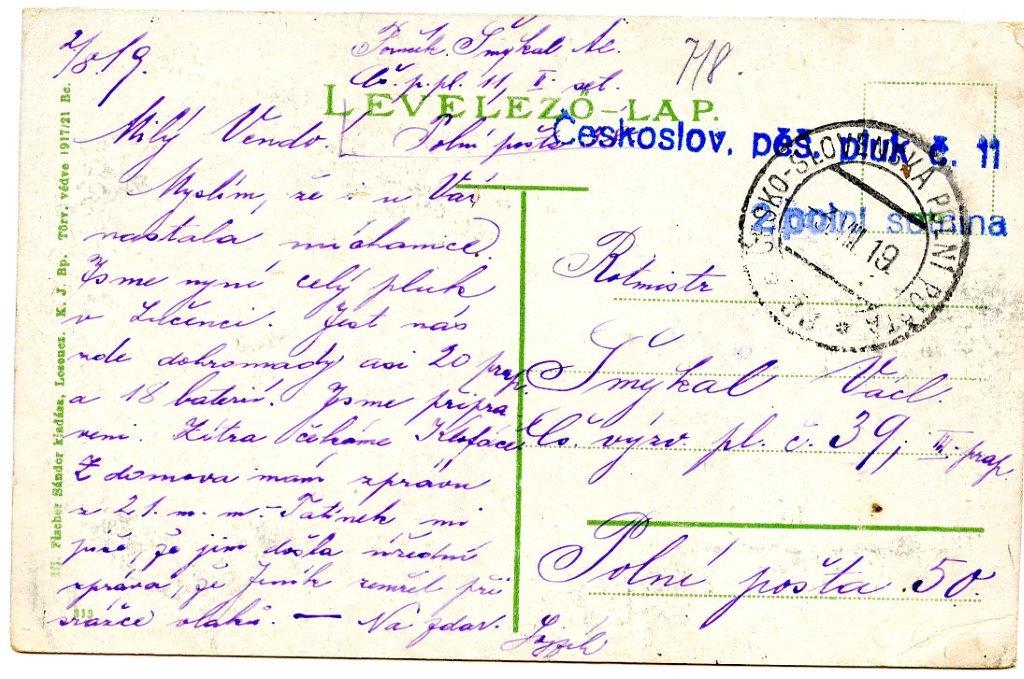 2/8. 19.
Poručík. Smýkal Al.
Čs. p. pl. 11, II. set.
Polní pošta
718.
LEVELEZŐ-LAP.
Českoslov. pěš. pluk č. 11
2 polní setnina
ČESKO-SLOVENSKÁ POLNÍ POŠTA
VIII 19
Milý Vendo.
Myslím, že i u Vás
nastala míchanice.
Jsme nyní celý pluk
v Lučenci. Jest nás
zde dohromady asi 20 prap.
a 18 baterií. Jsme připra
veni. Zítra čekáme Klofáče.
Z domova mám zprávu
z 21. m. m. Tatínek mi
píše, že jim došla úřední
zpráva, že Jeník zemřel při
srážce vlaků. — Na zdar.
Rotmistr
Smýkal Václ.
Čs. výzv. pl. č. 39, III. prap.
Polní pošta 50.
Fischer Sándor kiadása, Losoncz. K. J. Bp. Törv. védve 1917/21 Be.
313